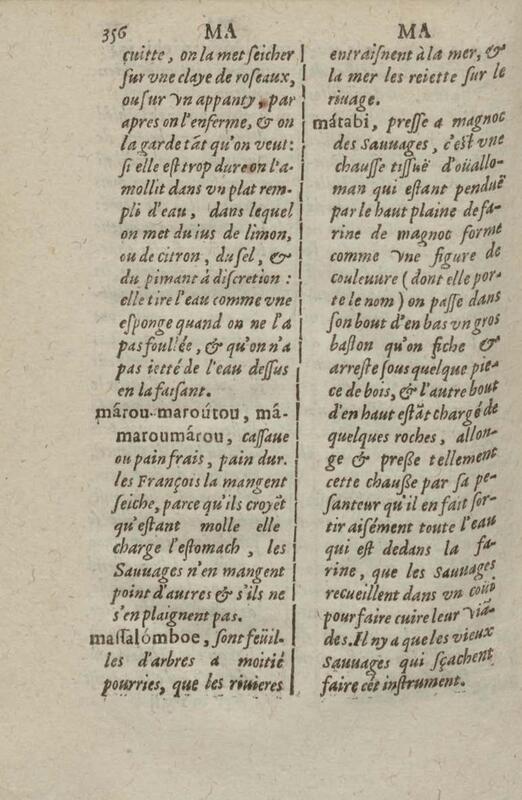 356 MA MA
cuitte, on la met seicher
sur vne claye de roseaux,
ou sur vn appanty, par
apres on l'enferme, & on
la garde tāt qu'on veut:
si elle est trop dure on l'a-
mollit dans vn plat rem-
pli d'eau, dans lequel
on met du ius de limon,
ou de citron, du sel, &
du pimant à discretion :
elle tire l'eau comme vne
esponge quand on ne l'a
pas foullée, & qu'on n'a
pas ietté de l'eau dessus
en la faisant.
márou-maroútou, má-
maroumárou, cassaue
ou pain frais, pain dur.
les François la mangent
seiche, parce qu'ils croyēt
qu'estant molle elle
charge l'estomach, les
Sauuages n'en mangent
point d'autres & s'ils ne
s'en plaignent pas.
massalómboe, sont feüil-
les d'arbres a moitié
pourries, que les riuieres
entraisnent à la mer, &
la mer les reiette sur le
riuage.
mátabi, presse a magnoc
des Sauuages, c'est vne
chausse tissuë d'oüallo-
man qui estant penduë
par le haut plaine de fa-
rine de magnoc forme
comme vne figure de
couleuure (dont elle por-
te le nom) on passe dans
son bout d'en bas vn gros
baston qu'on fiche &
arreste sous quelque pie-
ce de bois, & l'autre bout
d'en haut estāt chargé de
quelques roches, allon-
ge & presse tellement
cette chausse par sa pe-
santeur qu'il en fait sor-
tir aisément toute l'eau
qui est dedans la fa-
rine, que les Sauuages
recueillent dans vn coüi
pour faire cuire leur viā-
des. Il ny a que les vieux
Sauuages qui sçachent
faire cét instrument.